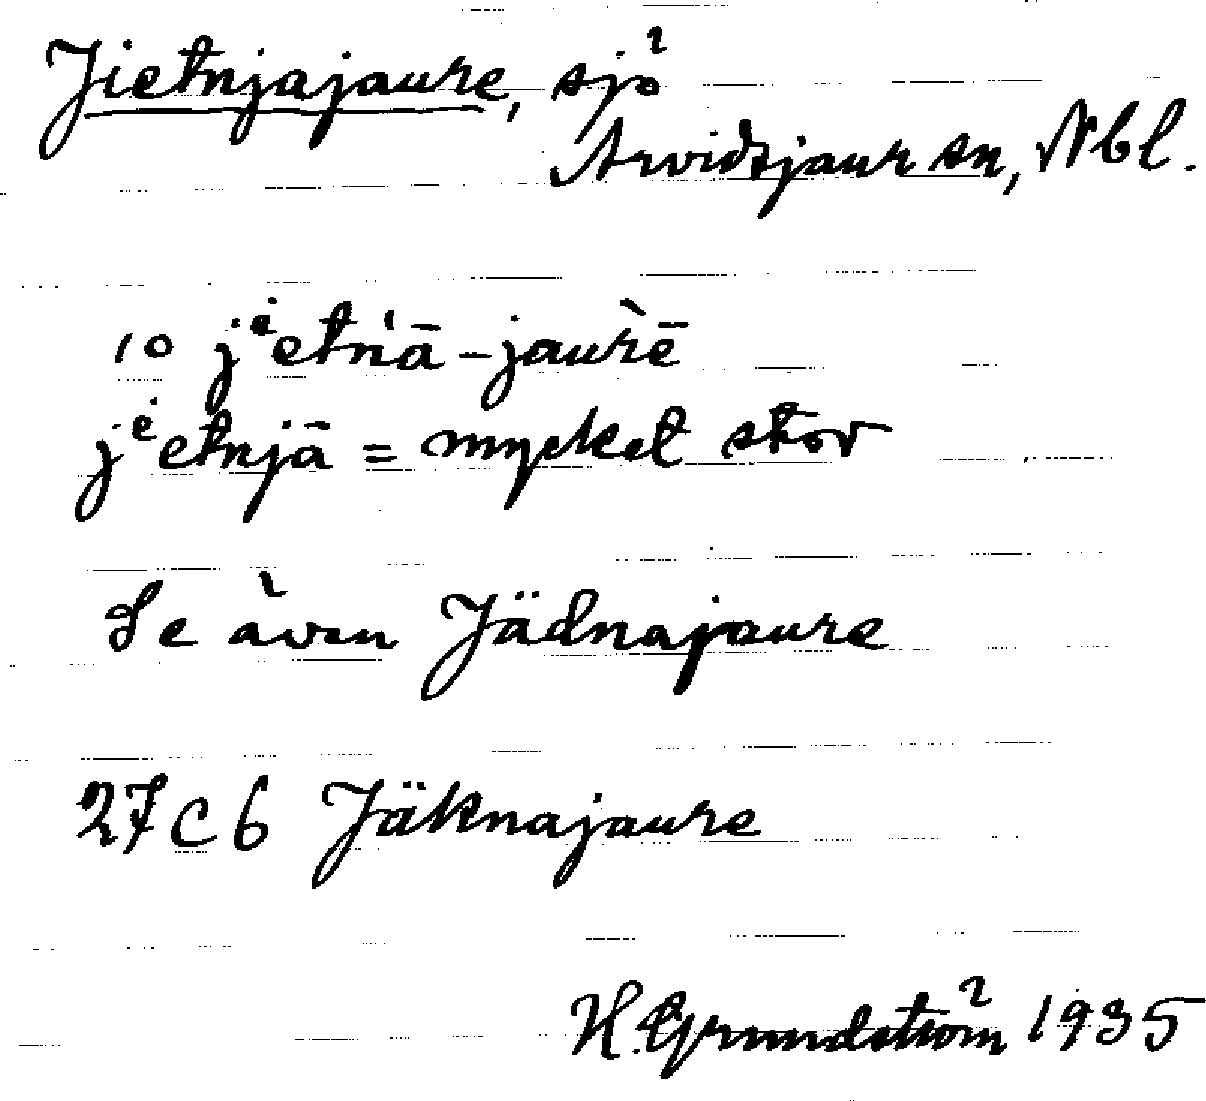 Jietnjajaure, sjö
Arvidsjaur sn, Nbl.
10 jⁱetn'ā-jaùrē
jⁱetnjā = mycket stor
Se även Jädnajaure
27C6 Jäknajaure
H. Grundström 1935